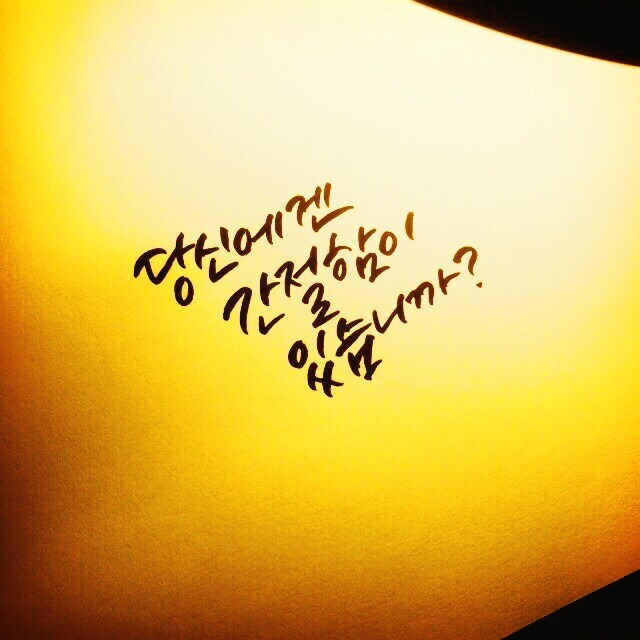 당신에겐
간절함이
있습니까?